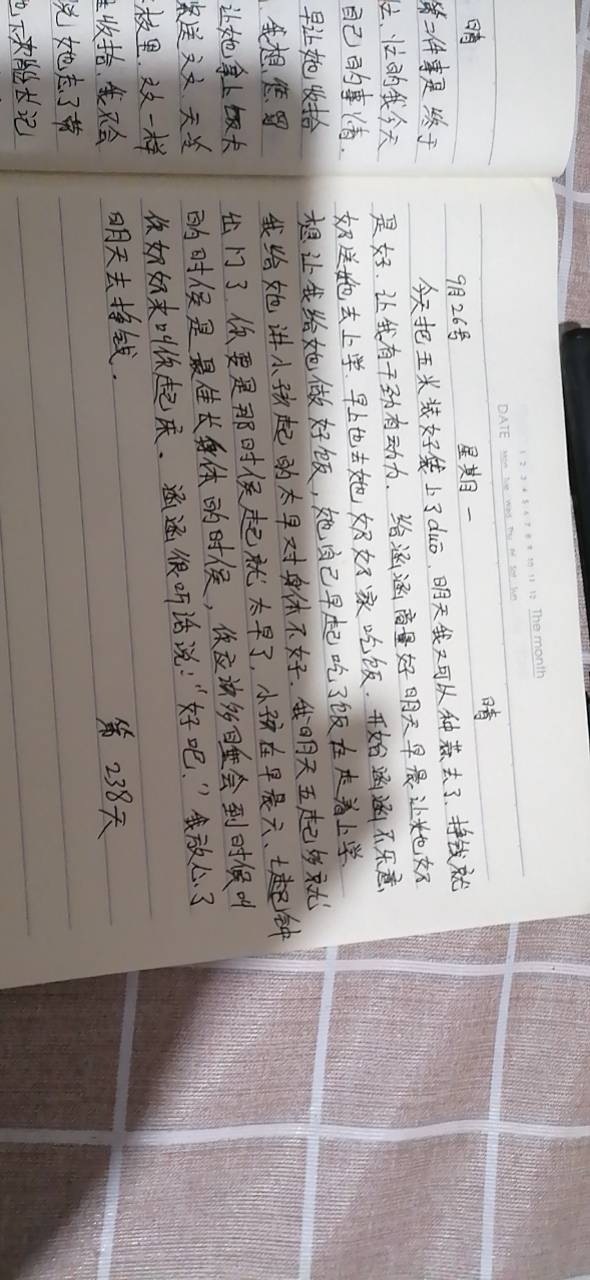 晴
第二件事是,终于
忙,忙的我今天
自己的事情.
早让她收拾
我想,您四
让她拿上饭卡
天冬
一样
收拾,我不会
她走了带
The month
1 2 3 4 5 6 7 8 9 10 11 12
DATE Mon Tue Wed Thu Fri Sat Sun
9月26号 星期一 晴
今天把玉米装好袋上了duo.明天我又可以种蒜去了.挣钱就
是好.让我有干劲有动力.给涵涵商量好明天早晨让她奶
奶送她去上学.早上也去她奶奶家吃饭.开始涵涵不乐意,
想让我给她做好饭,她自己早起吃了饭在走着上学.
我给她讲小孩起的太早对身体不好.我明天五起多就
出门了.你要是那时候起就太早了,小孩在早晨六、七起钟
的时侯是最佳长身体的时侯,你应该多睡会到时候叫
你奶奶来叫你起床。涵涵很听话说:“好吧.”我放心了
明天去挣钱.
第238天